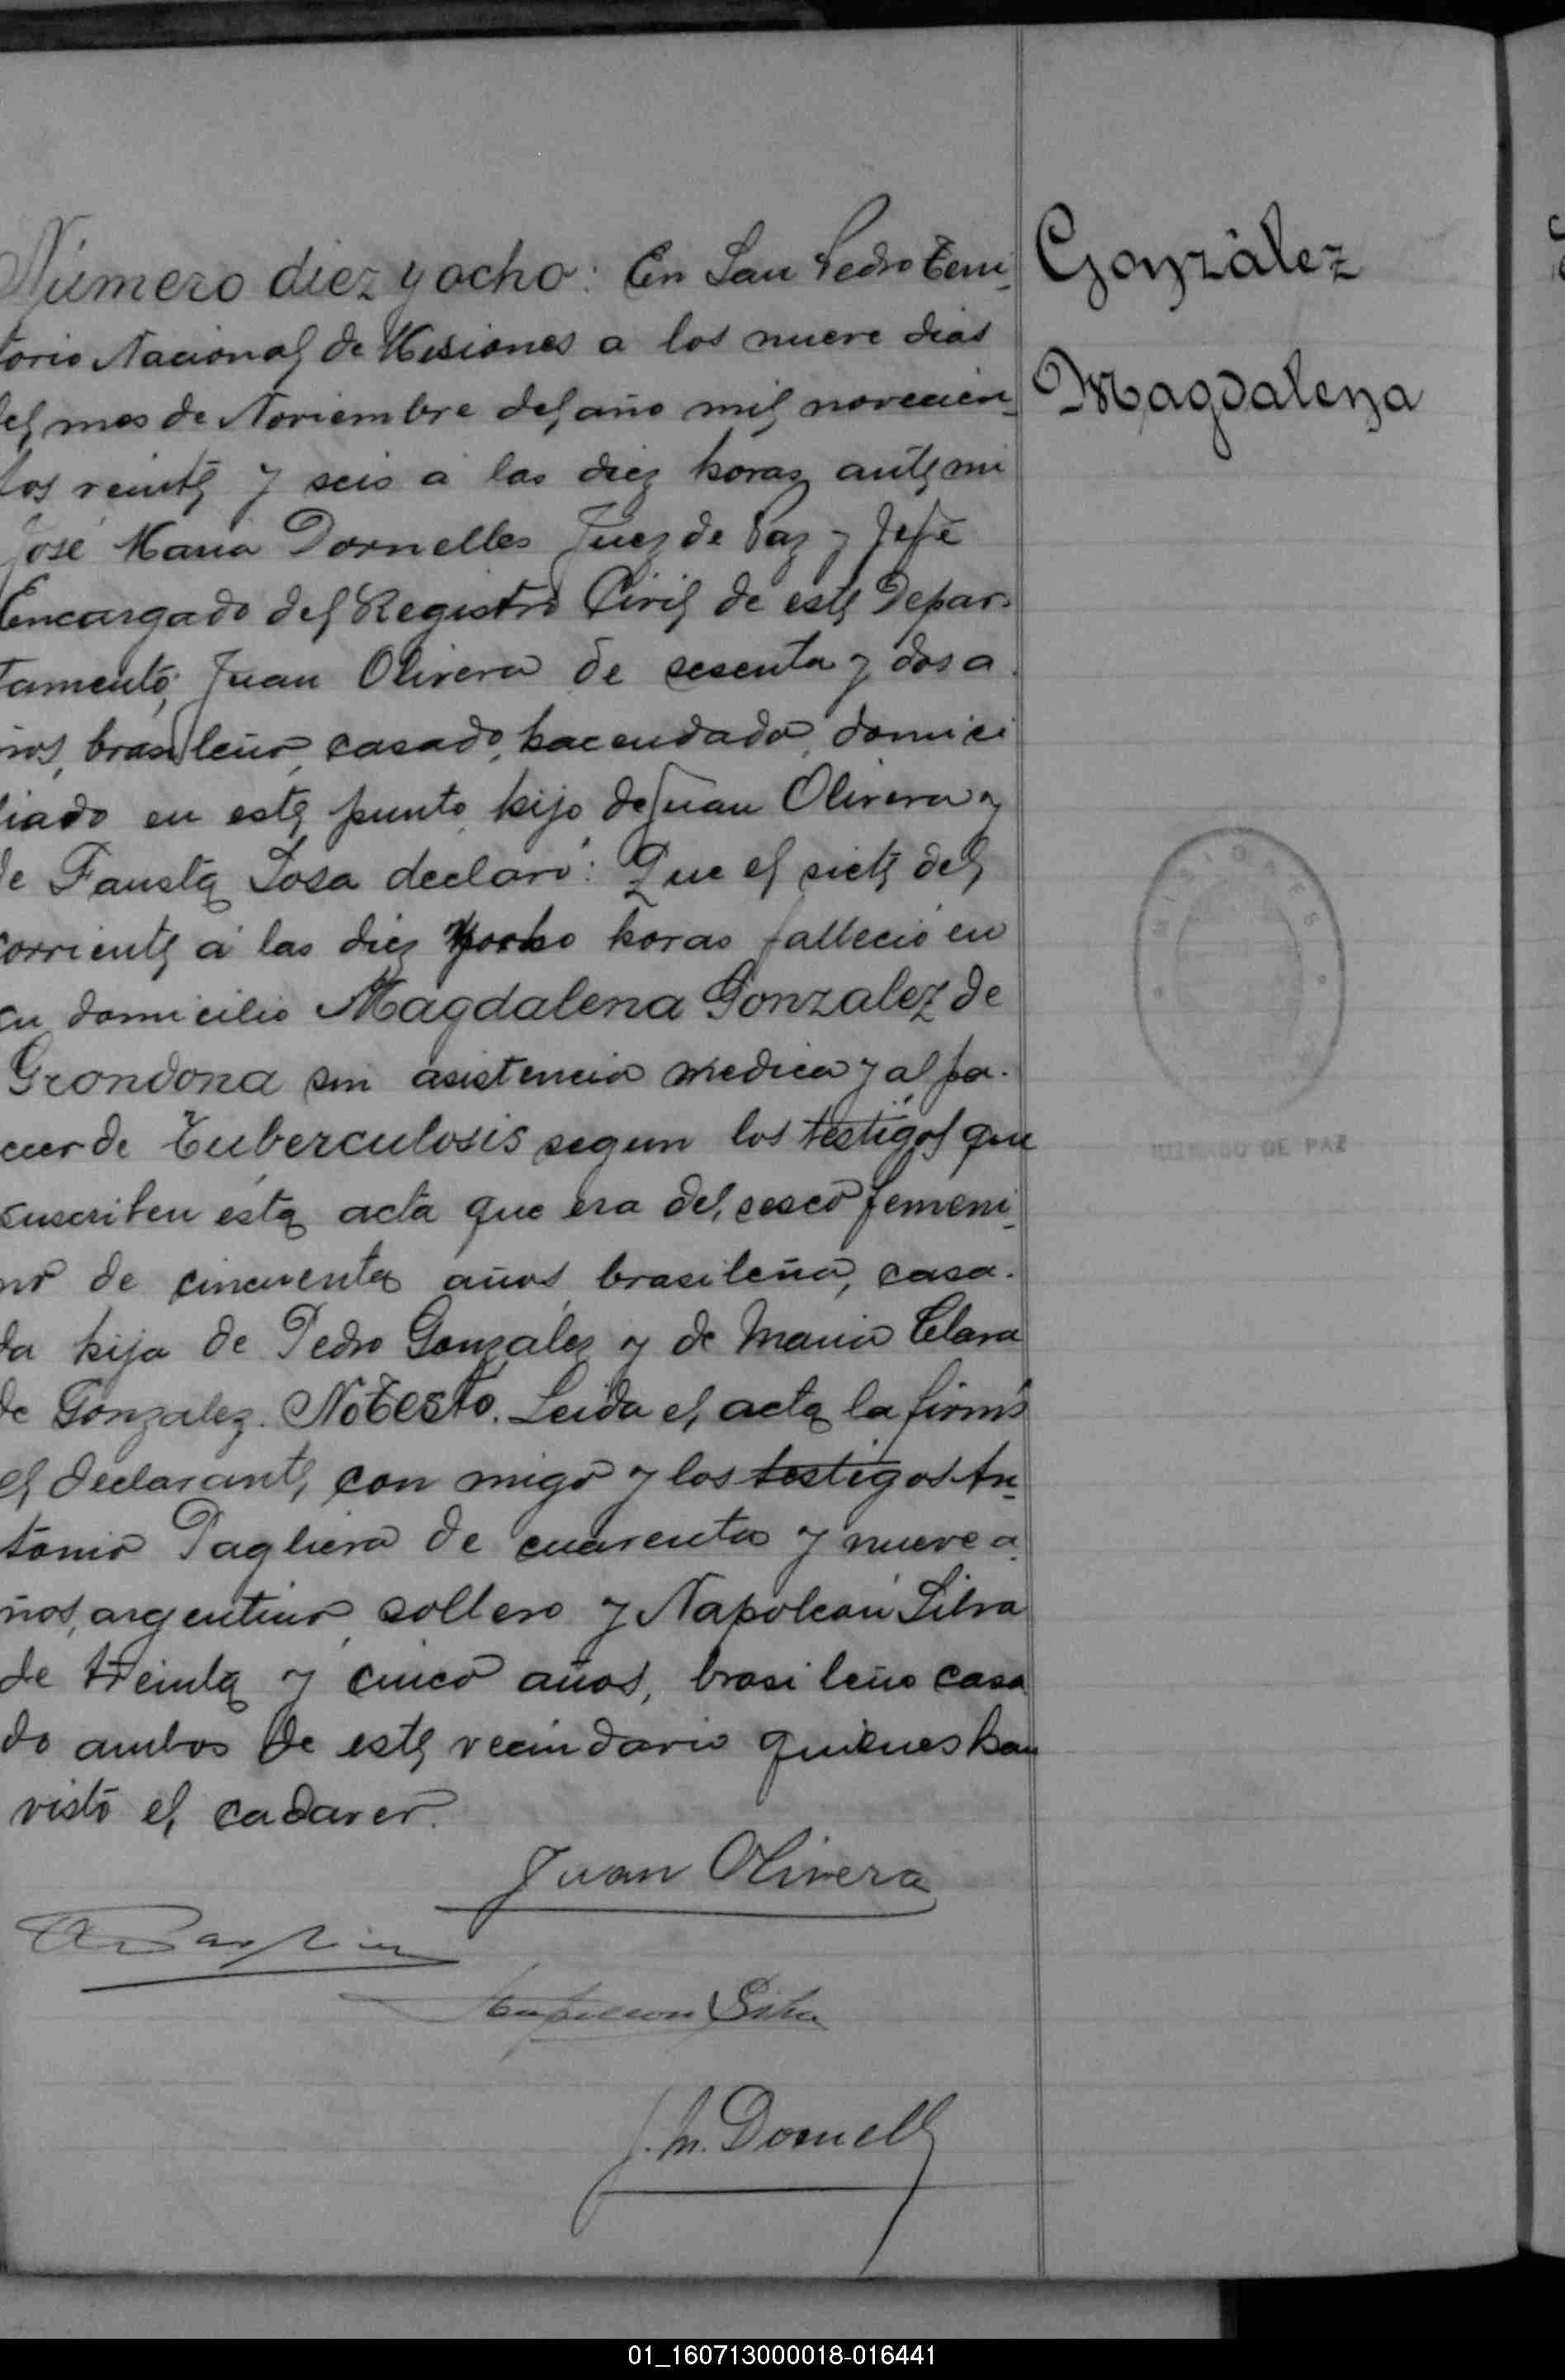 Número diez y ocho: En San Pedro Terri_
torio Nacional de Misiones a los nueve dias
del mes de Noviembre del año mil novecien_
tos veinte y seis a las diez horas ante mi
José Maria Dornelles Juez de Paz y Jefe
Encargado del Registro Civil de este Depar-
tamento; Juan Olivera de sesenta y dos a
ños, brasileño, casado, hacendado, domici
liado en este punto hijo de Juan Olivera y
de Fausta Sosa declaró: Que el siete del
corriente á las diez y ocho horas falleció en
su domicilio Magdalena Gonzalez de
Grondona sin asistencia medica y al pa-
cer de Tuberculosis segun los testigos que
suscriben esta acta que era del secso femeni_
no de cincuenta años, brasileña, casa-
da hija de Pedro González y de Maria Clara
de Gonzalez. No testó. Leida el acta la firmó
el declarante con migo y los testigos An_
tonio Pagliera de cuarenta y nueve a
ños, argentino, soltero y Napoleón Silva
de treinta y cinco años, brasileño casa
do ambos de este vecindario quienes han
visto el cadaver.
Juan Olivera
Napoleon Silva
J. M. Dornell
González
Magdalena
MISIONES
JUZGADO DE PAZ
01_160713000018-016441